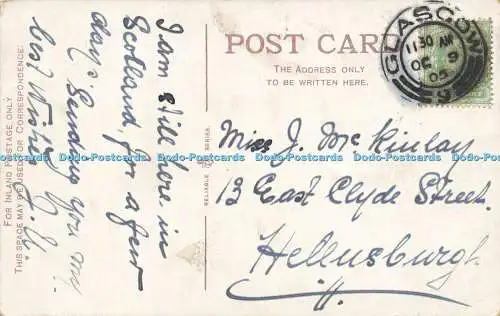 POST CARD.
THE ADDRESS ONLY
TO BE WRITTEN HERE.
GLASGOW
11 30 AM
OC 9
05
9
FOR INLAND POSTAGE ONLY
THIS SPACE MAY BE USED FOR CORRESPONDENCE.
RELIABLE SERIES.
I am still here in
Scotland, for a few
days. Sending you my
best Wishes J.
Miss J. Mc Kinlay
13 East Clyde Street.
Hellensburgh
Dodo-Postcards Dodo-Postcards Dodo-Postcards Dodo-Postcards Dodo-Postcards Dodo-Postcards